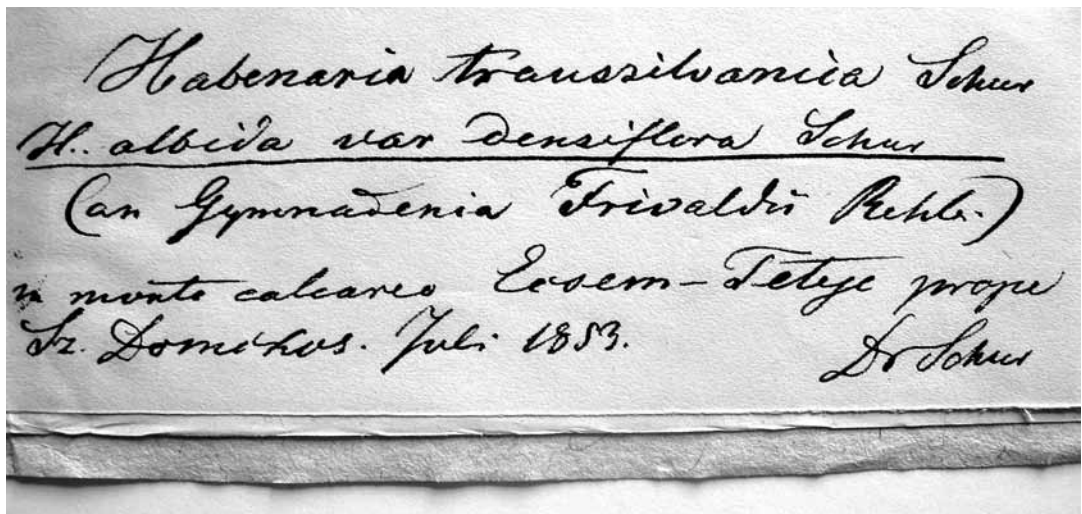 Habenaria transsilvanica Schur
H. albida var densiflora Schur
(an Gymnadenia Frivaldii
in monte calcareo Ecsem-Teteje prope
Sz. Domokos. Juli 1853.
Dr Schur